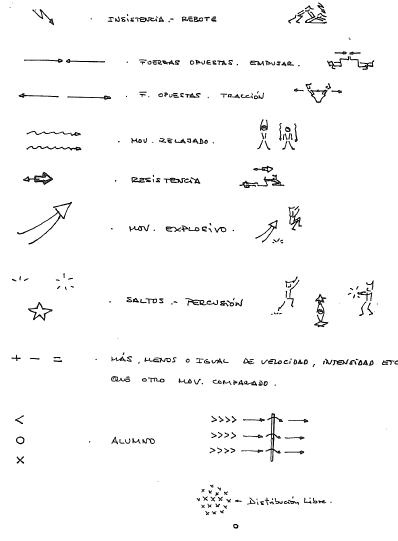 INSISTENCIA.- REBOTE
FUERZAS OPUESTAS. EMPUJAR.
F. OPUESTAS. TRACCIÓN
MOV. RELAJADO.
RESISTENCIA
MOV. EXPLOSIVO.
SALTOS.- PERCUSIÓN
+ - = . MÁS, MENOS O IGUAL DE VELOCIDAD, INTENSIDAD ETC
QUE OTRO MOV. COMPARADO.
<
O . ALUMNO
X
Distribución Libre.